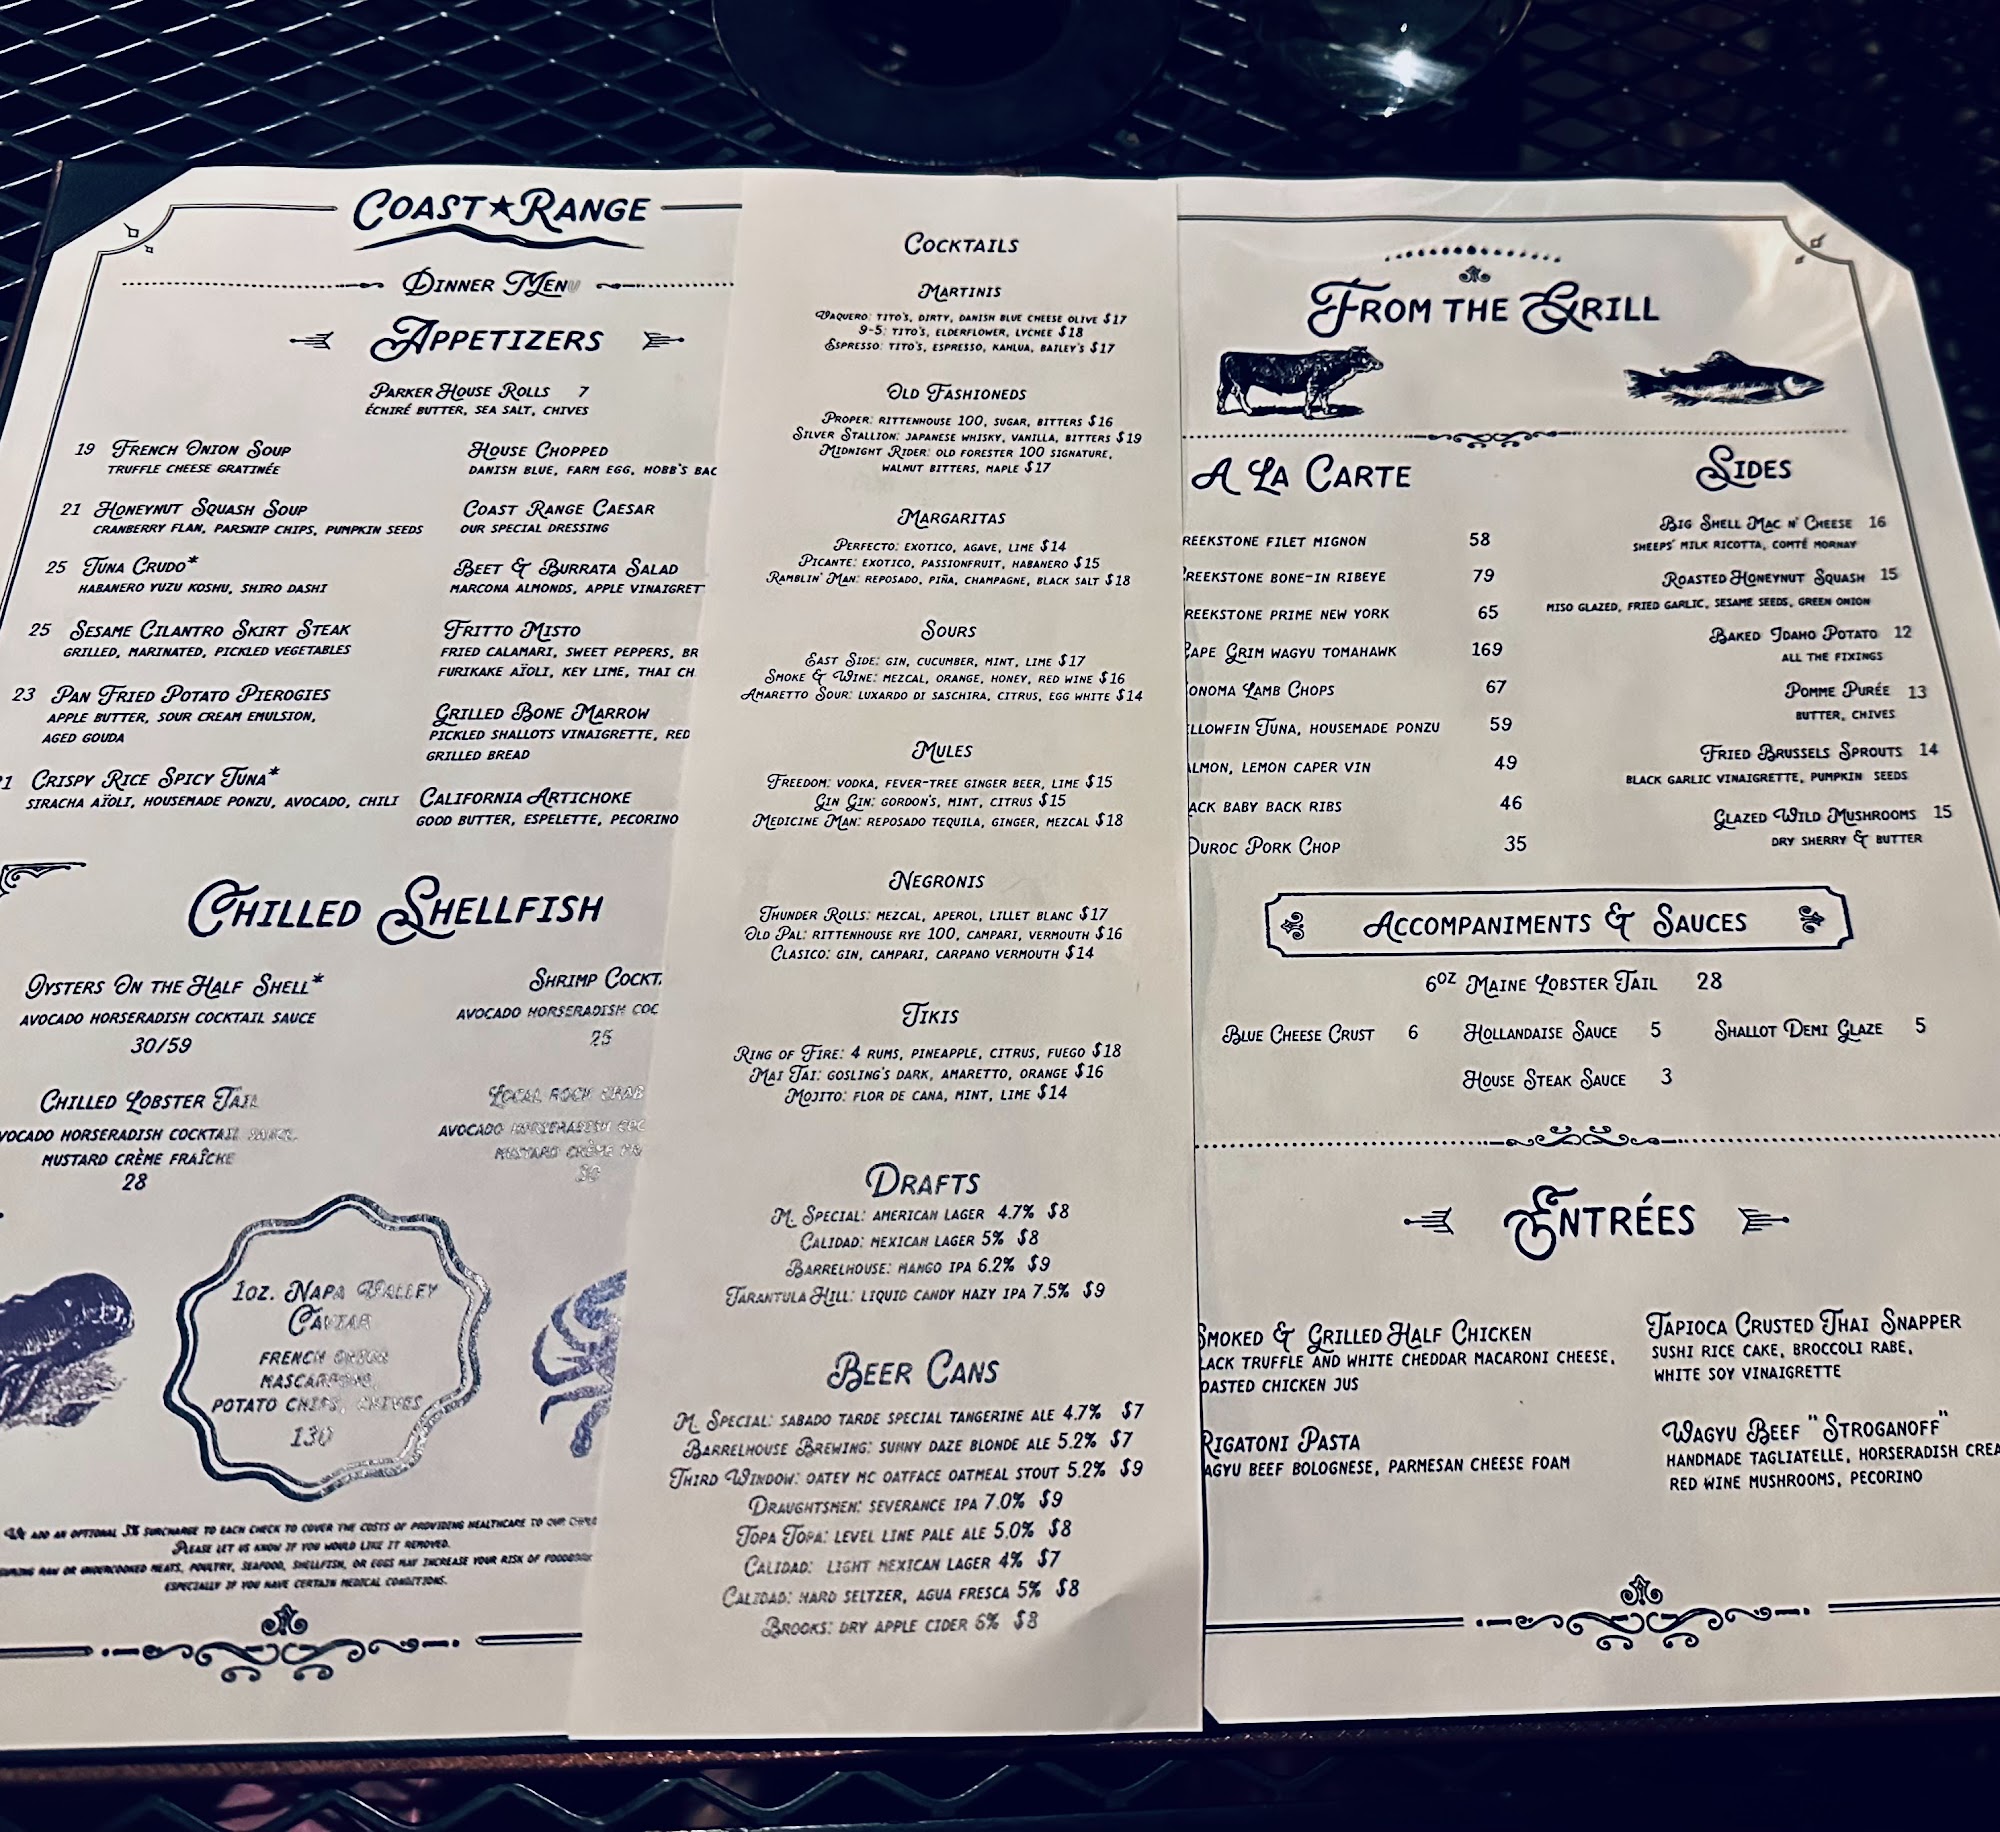 Coast★Range
Dinner Menu
Appetizers
Parker House Rolls 7
Échiré butter, sea salt, chives
19 French Onion Soup
truffle cheese gratinée
21 Honeynut Squash Soup
cranberry flan, parsnip chips, pumpkin seeds
25 Tuna Crudo*
habanero yuzu koshu, shiro dashi
25 Sesame Cilantro Skirt Steak
grilled, marinated, pickled vegetables
23 Pan Fried Potato Pierogies
apple butter, sour cream emulsion,
aged gouda
Crispy Rice Spicy Tuna*
siracha aïoli, housemade ponzu, avocado, chili
House Chopped
Danish blue, farm egg, Hobb's
Coast Range Caesar
our special dressing
Beet & Burrata Salad
marcona almonds, apple
Fritto Misto
fried calamari, sweet peppers,
furikake aïoli, key lime, Thai
Grilled Bone Marrow
pickled shallots vinaigrette, red
grilled bread
California Artichoke
good butter, espelette, pecorino
Chilled Shellfish
Oysters On the Half Shell*
avocado horseradish cocktail sauce
30/59
Shrimp
avocado horseradish
25
Chilled Lobster Tail
horseradish cocktail sauce,
mustard crème fraîche
28
Local Rock Crab
avocado horseradish
mustard crème
30
1oz. Napa Valley
Caviar
French onion
mascarpone,
potato chips, chives
130
We add an optional 3% surcharge to each check to cover the costs of providing healthcare to our
Please let us know if you would like it removed.
raw or undercooked meats, poultry, seafood, shellfish, or eggs may increase your risk of
especially if you have certain medical conditions.
Cocktails
Martinis
Vaquero: Tito's, dirty, Danish blue cheese olive $17
9-5: Tito's, elderflower, lychee $18
Espresso: Tito's, espresso, Kahlua, Bailey's $17
Old Fashioneds
Proper: Rittenhouse 100, sugar, bitters $16
Silver Stallion: Japanese whisky, vanilla, bitters $19
Midnight Rider: Old Forester 100 Signature,
walnut bitters, maple $17
Margaritas
Perfecto: Exotico, agave, lime $14
Picante: Exotico, passionfruit, habanero $15
Ramblin' Man: reposado, piña, champagne, black salt $18
Sours
East Side: gin, cucumber, mint, lime $17
Smoke & Wine: mezcal, orange, honey, red wine $16
Amaretto Sour: Luxardo di Saschira, citrus, egg white $14
Mules
Freedom: vodka, Fever-Tree ginger beer, lime $15
Gin Gin: Gordon's, mint, citrus $15
Medicine Man: reposado tequila, ginger, mezcal $18
Negronis
Thunder Rolls: mezcal, Aperol, Lillet Blanc $17
Old Pal: Rittenhouse Rye 100, Campari, vermouth $16
Clasico: gin, Campari, Carpano vermouth $14
Tikis
Ring of Fire: 4 rums, pineapple, citrus, fuego $18
Mai Tai: Gosling's Dark, amaretto, orange $16
Mojito: Flor de Cana, mint, lime $14
Drafts
M. Special: American lager 4.7% $8
Calidad: Mexican lager 5% $8
Barrelhouse: mango IPA 6.2% $9
Tarantula Hill: Liquid Candy hazy IPA 7.5% $9
Beer Cans
M. Special: Sabado Tarde Special tangerine ale 4.7% $7
Barrelhouse Brewing: Sunny Daze blonde ale 5.2% $7
Third Window: Oatey Mc Oatface oatmeal stout 5.2% $9
Draughtsmen: Severance IPA 7.0% $9
Topa Topa: Level Line pale ale 5.0% $8
Calidad: light Mexican lager 4% $7
Calidad: hard seltzer, agua fresca 5% $8
Brooks: dry apple cider 6% $8
From the Grill
A La Carte
filet mignon 58
bone-in ribeye 79
prime New York 65
Grim wagyu tomahawk 169
Lamb Chops 67
Tuna, housemade ponzu 59
lemon caper vin 49
baby back ribs 46
Duroc Pork Chop 35
Sides
Big Shell Mac n' Cheese 16
sheeps' milk ricotta, comté mornay
Roasted Honeynut Squash 15
miso glazed, fried garlic, sesame seeds, green onion
Baked Idaho Potato 12
all the fixings
Pomme Purée 13
butter, chives
Fried Brussels Sprouts 14
black garlic vinaigrette, pumpkin seeds
Glazed Wild Mushrooms 15
dry sherry & butter
Accompaniments & Sauces
6oz Maine Lobster Tail 28
Blue Cheese Crust 6 Hollandaise Sauce 5 Shallot Demi Glaze 5
House Steak Sauce 3
Entrées
Smoked & Grilled Half Chicken
truffle and white cheddar macaroni cheese,
chicken jus
Rigatoni Pasta
beef bolognese, parmesan cheese foam
Tapioca Crusted Thai Snapper
sushi rice cake, broccoli rabe,
white soy vinaigrette
Wagyu Beef "Stroganoff"
handmade tagliatelle, horseradish
red wine mushrooms, pecorino